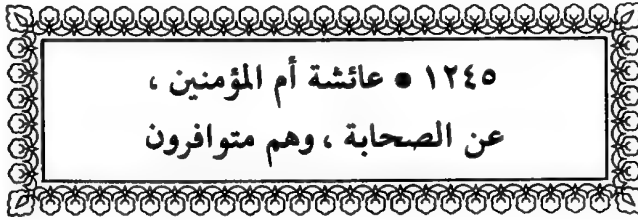 ١٢٤٥ • عائشة أم المؤمنين ،
عن الصحابة ، وهم متوافرون